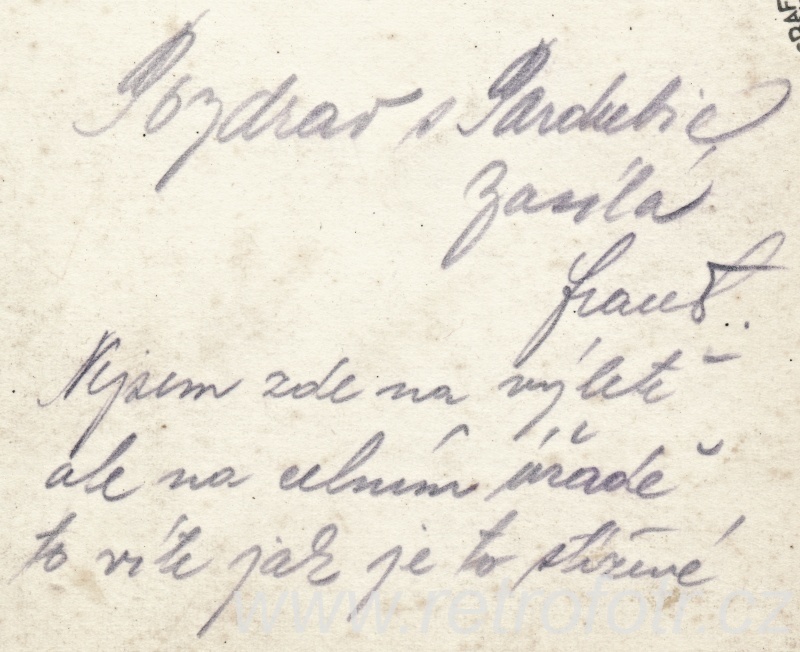 GRAF
Pozdrav s Pardubic
zasílá
Frant.
Nejsem zde na výletě
ale na celním úřadě
to víte jak je to
www.retrofotr.cz